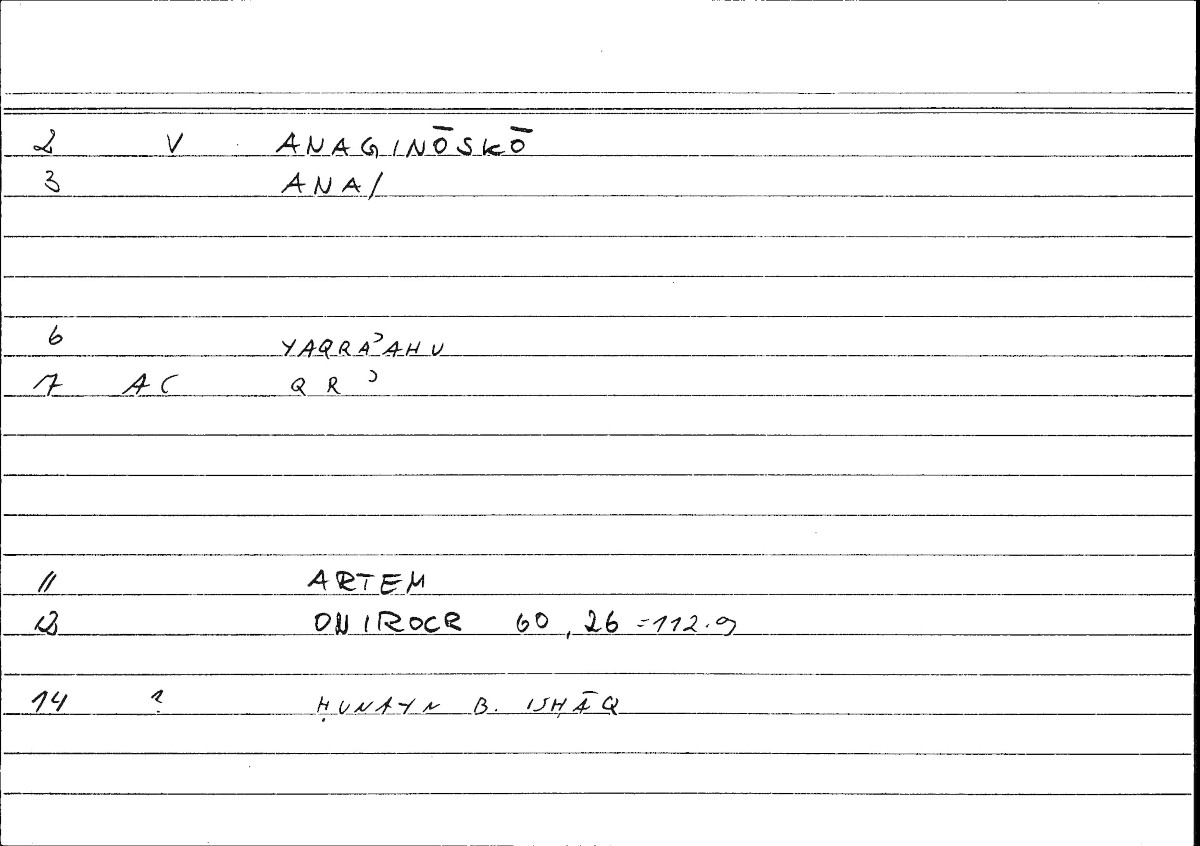 2 V ANAGINŌSKŌ
3 ANA/
6 YAQRAʾAHU
7 AC Q R ʾ
11 ARTEM
13 ONIROCR 60, 26 = 112.9
14 ? ḤUNAYN B. ISḤĀQ